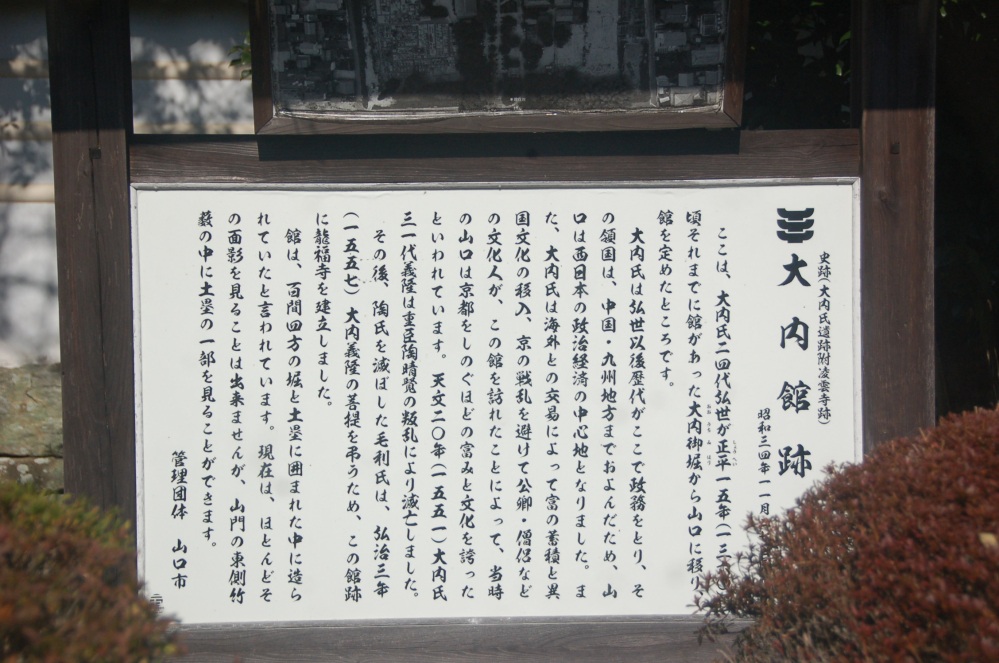 史跡(大内氏遺跡附凌雲寺跡)
大内館跡
昭和三四年一一月
ここは、大内氏二四代弘世が正平一五年(一三
頃それまでに館があった大内御堀から山口に移り
館を定めたところです。
大内氏は弘世以後歴代がここで政務をとり、そ
の領国は、中国・九州地方までおよんだため、山
口は西日本の政治経済の中心地となりました。ま
た、大内氏は海外との交易によって富の蓄積と異
国文化の移入、京の戦乱を避けて公卿・僧侶など
の文化人が、この館を訪れたことによって、当時
の山口は京都をしのぐほどの富みと文化を誇った
といわれています。天文二〇年(一五五一)大内氏
三一代義隆は重臣陶晴賢の叛乱により滅亡しました。
その後、陶氏を滅ぼした毛利氏は、弘治三年
(一五五七)大内義隆の菩提を弔うため、この館跡
に龍福寺を建立しました。
館は、百間四方の堀と土塁に囲まれた中に造ら
れていたと言われています。現在は、ほとんどそ
の面影を見ることは出来ませんが、山門の東側竹
藪の中に土塁の一部を見ることができます。
管理団体 山口市